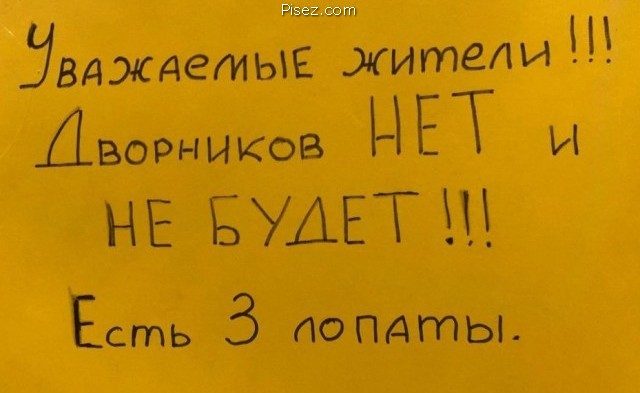 Pisez.com
Уважаемые жители!!!
Дворников НЕТ и
НЕ БУДЕТ!!!
Есть 3 лопаты.